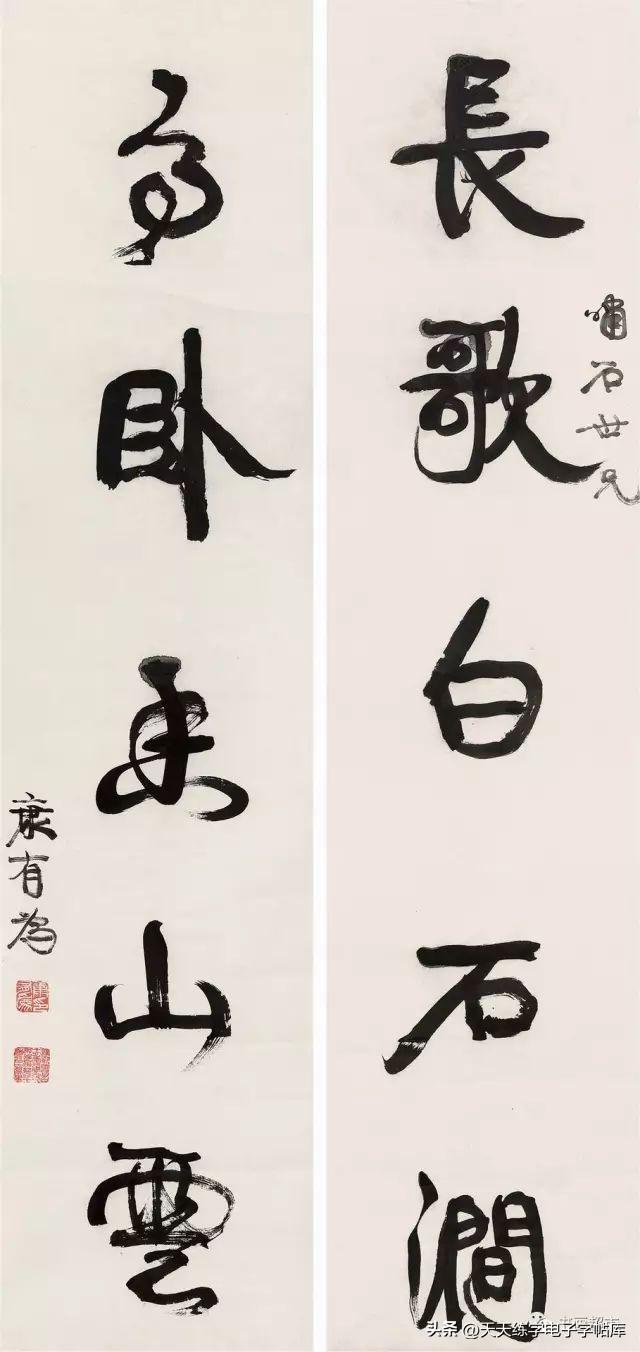 長歌白石澗
嘯石世兄
高卧山雲
康有為
头条 @天天练字电子字帖库